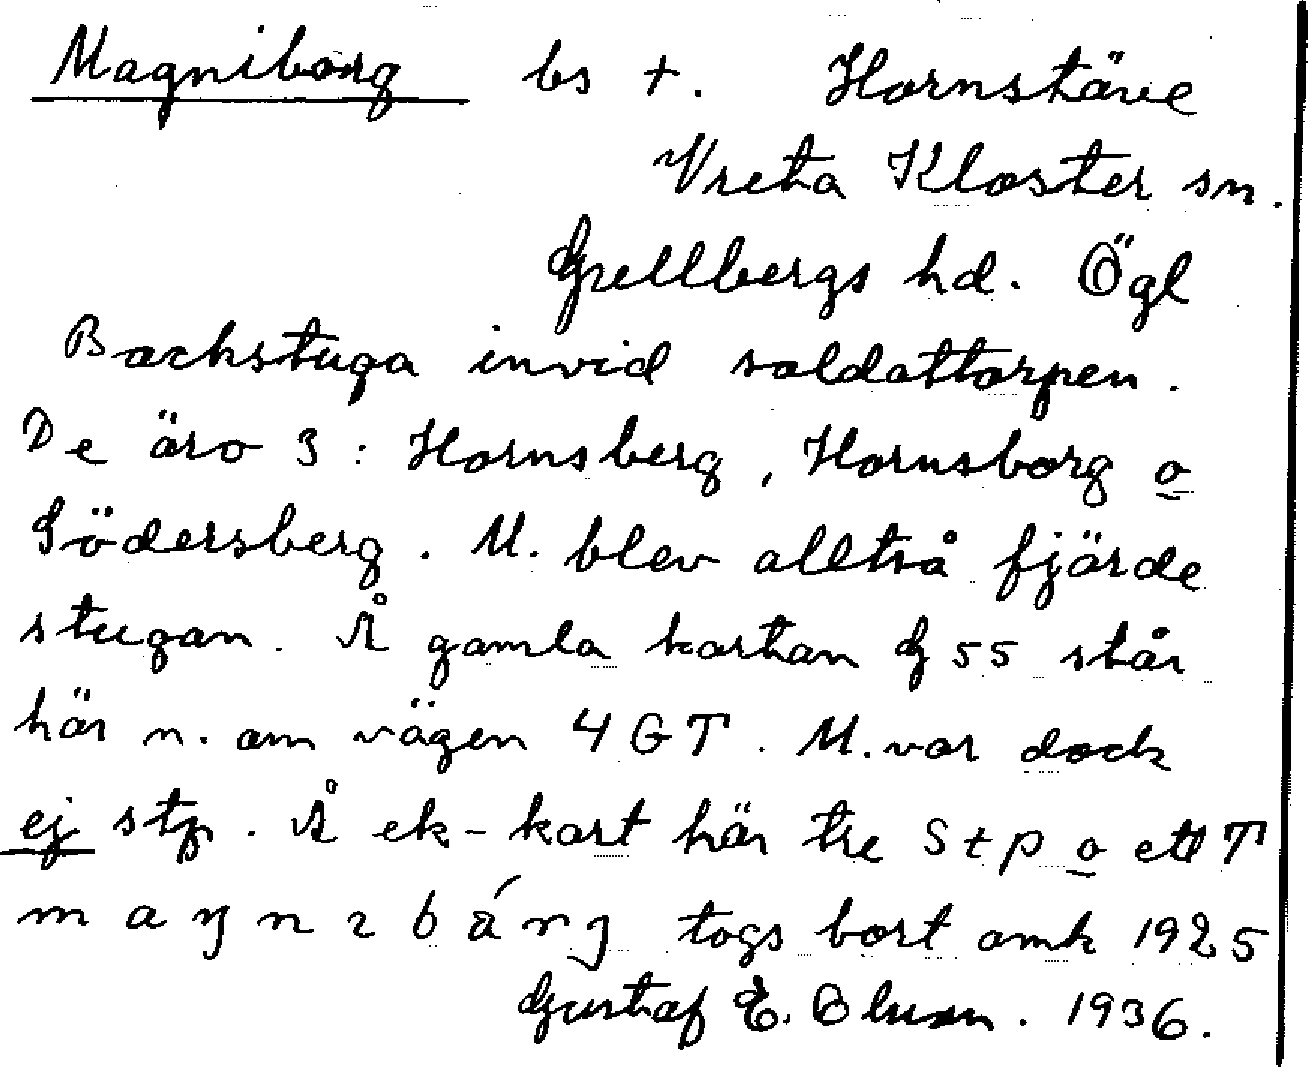 Magniborg bs +. Hornstäve
Vreta Kloster sn.
Gullbergs hd. Ögl
Backstuga invid soldattorpen.
De äro 3 : Hornsberg, Hornsborg o
Södersberg. M. blev alltså fjärde
stugan. Å gamla kartan G 55 står
här n. om vägen 4 GT. M. var dock
ej stp. Å ek-kart här tre Stp o ett T
togs bort omk 1925
Gustaf E. Olsson. 1936.